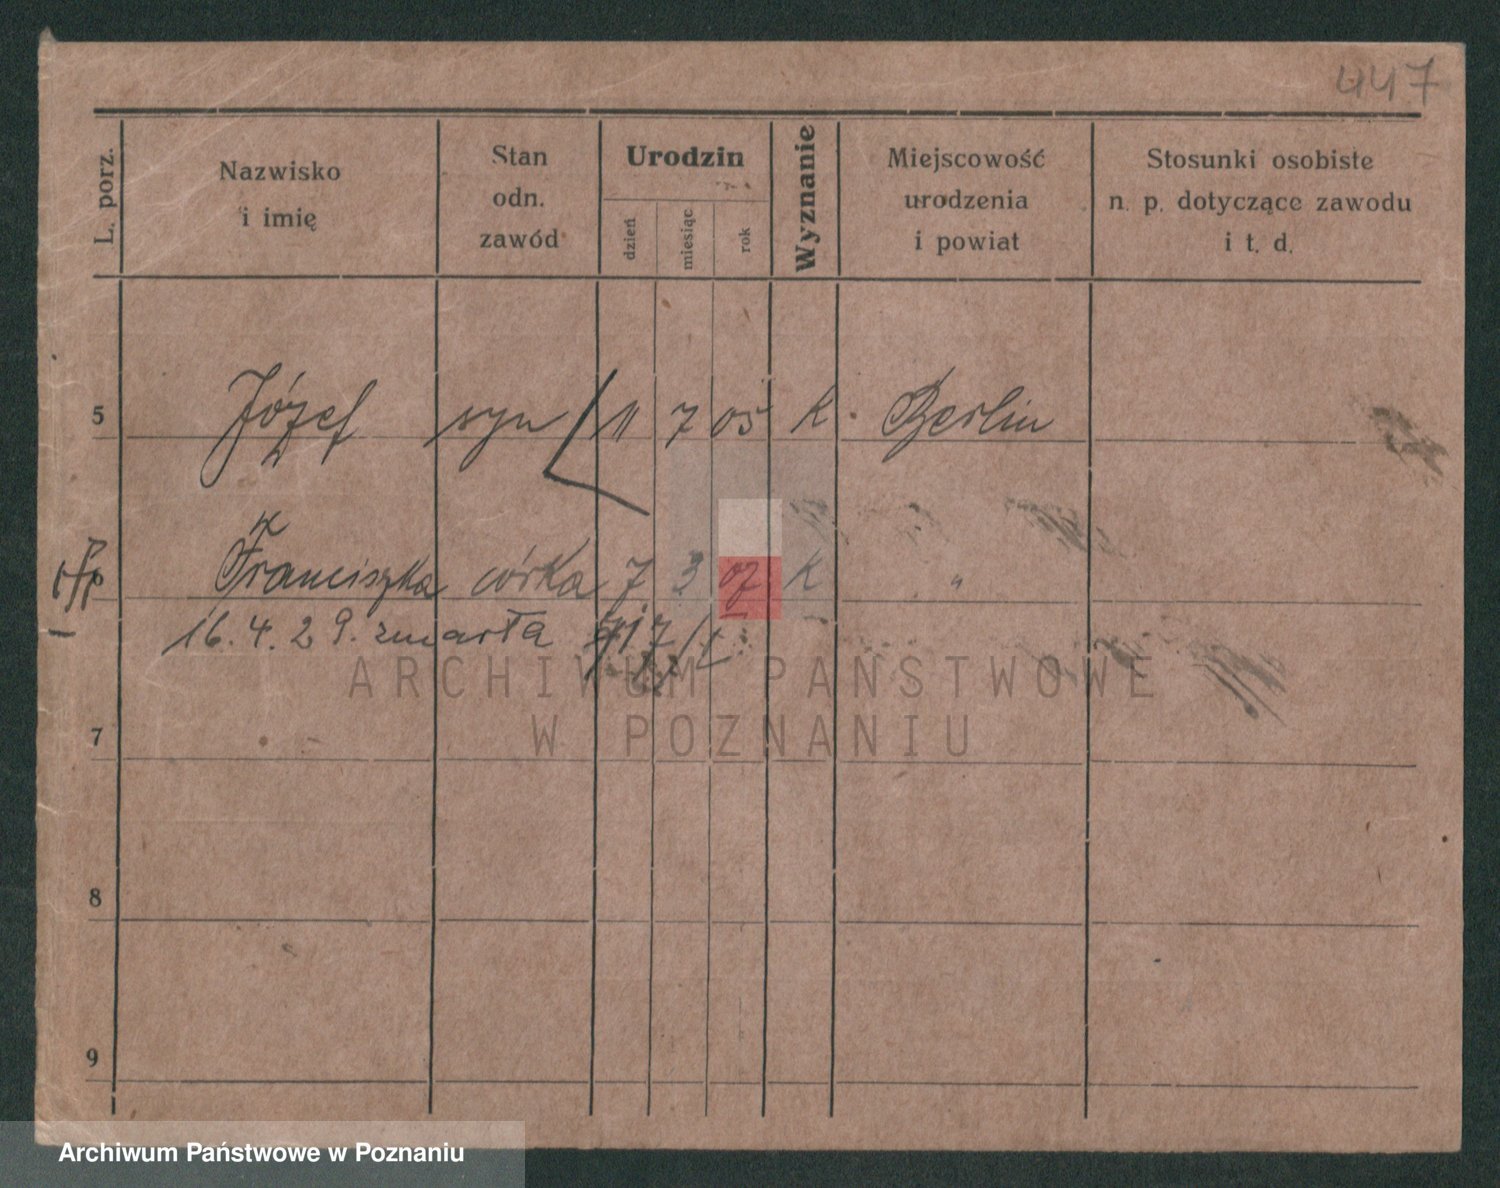 447
L. porz.
Nazwisko
i imię
Stan
odn.
zawód
Urodzin
dzień
miesiąc
rok
Wyznanie
Miejscowość
urodzenia
i powiat
Stosunki osobiste
n. p. dotyczące zawodu
i t. d.
5 Józef syn 11 7 05 k. Berlin
6 Franciszka córka 7 3 07 k "
16. 4. 29. zmarła
ARCHIWUM PAŃSTWOWE
W POZNANIU
7
8
9
Archiwum Państwowe w Poznaniu